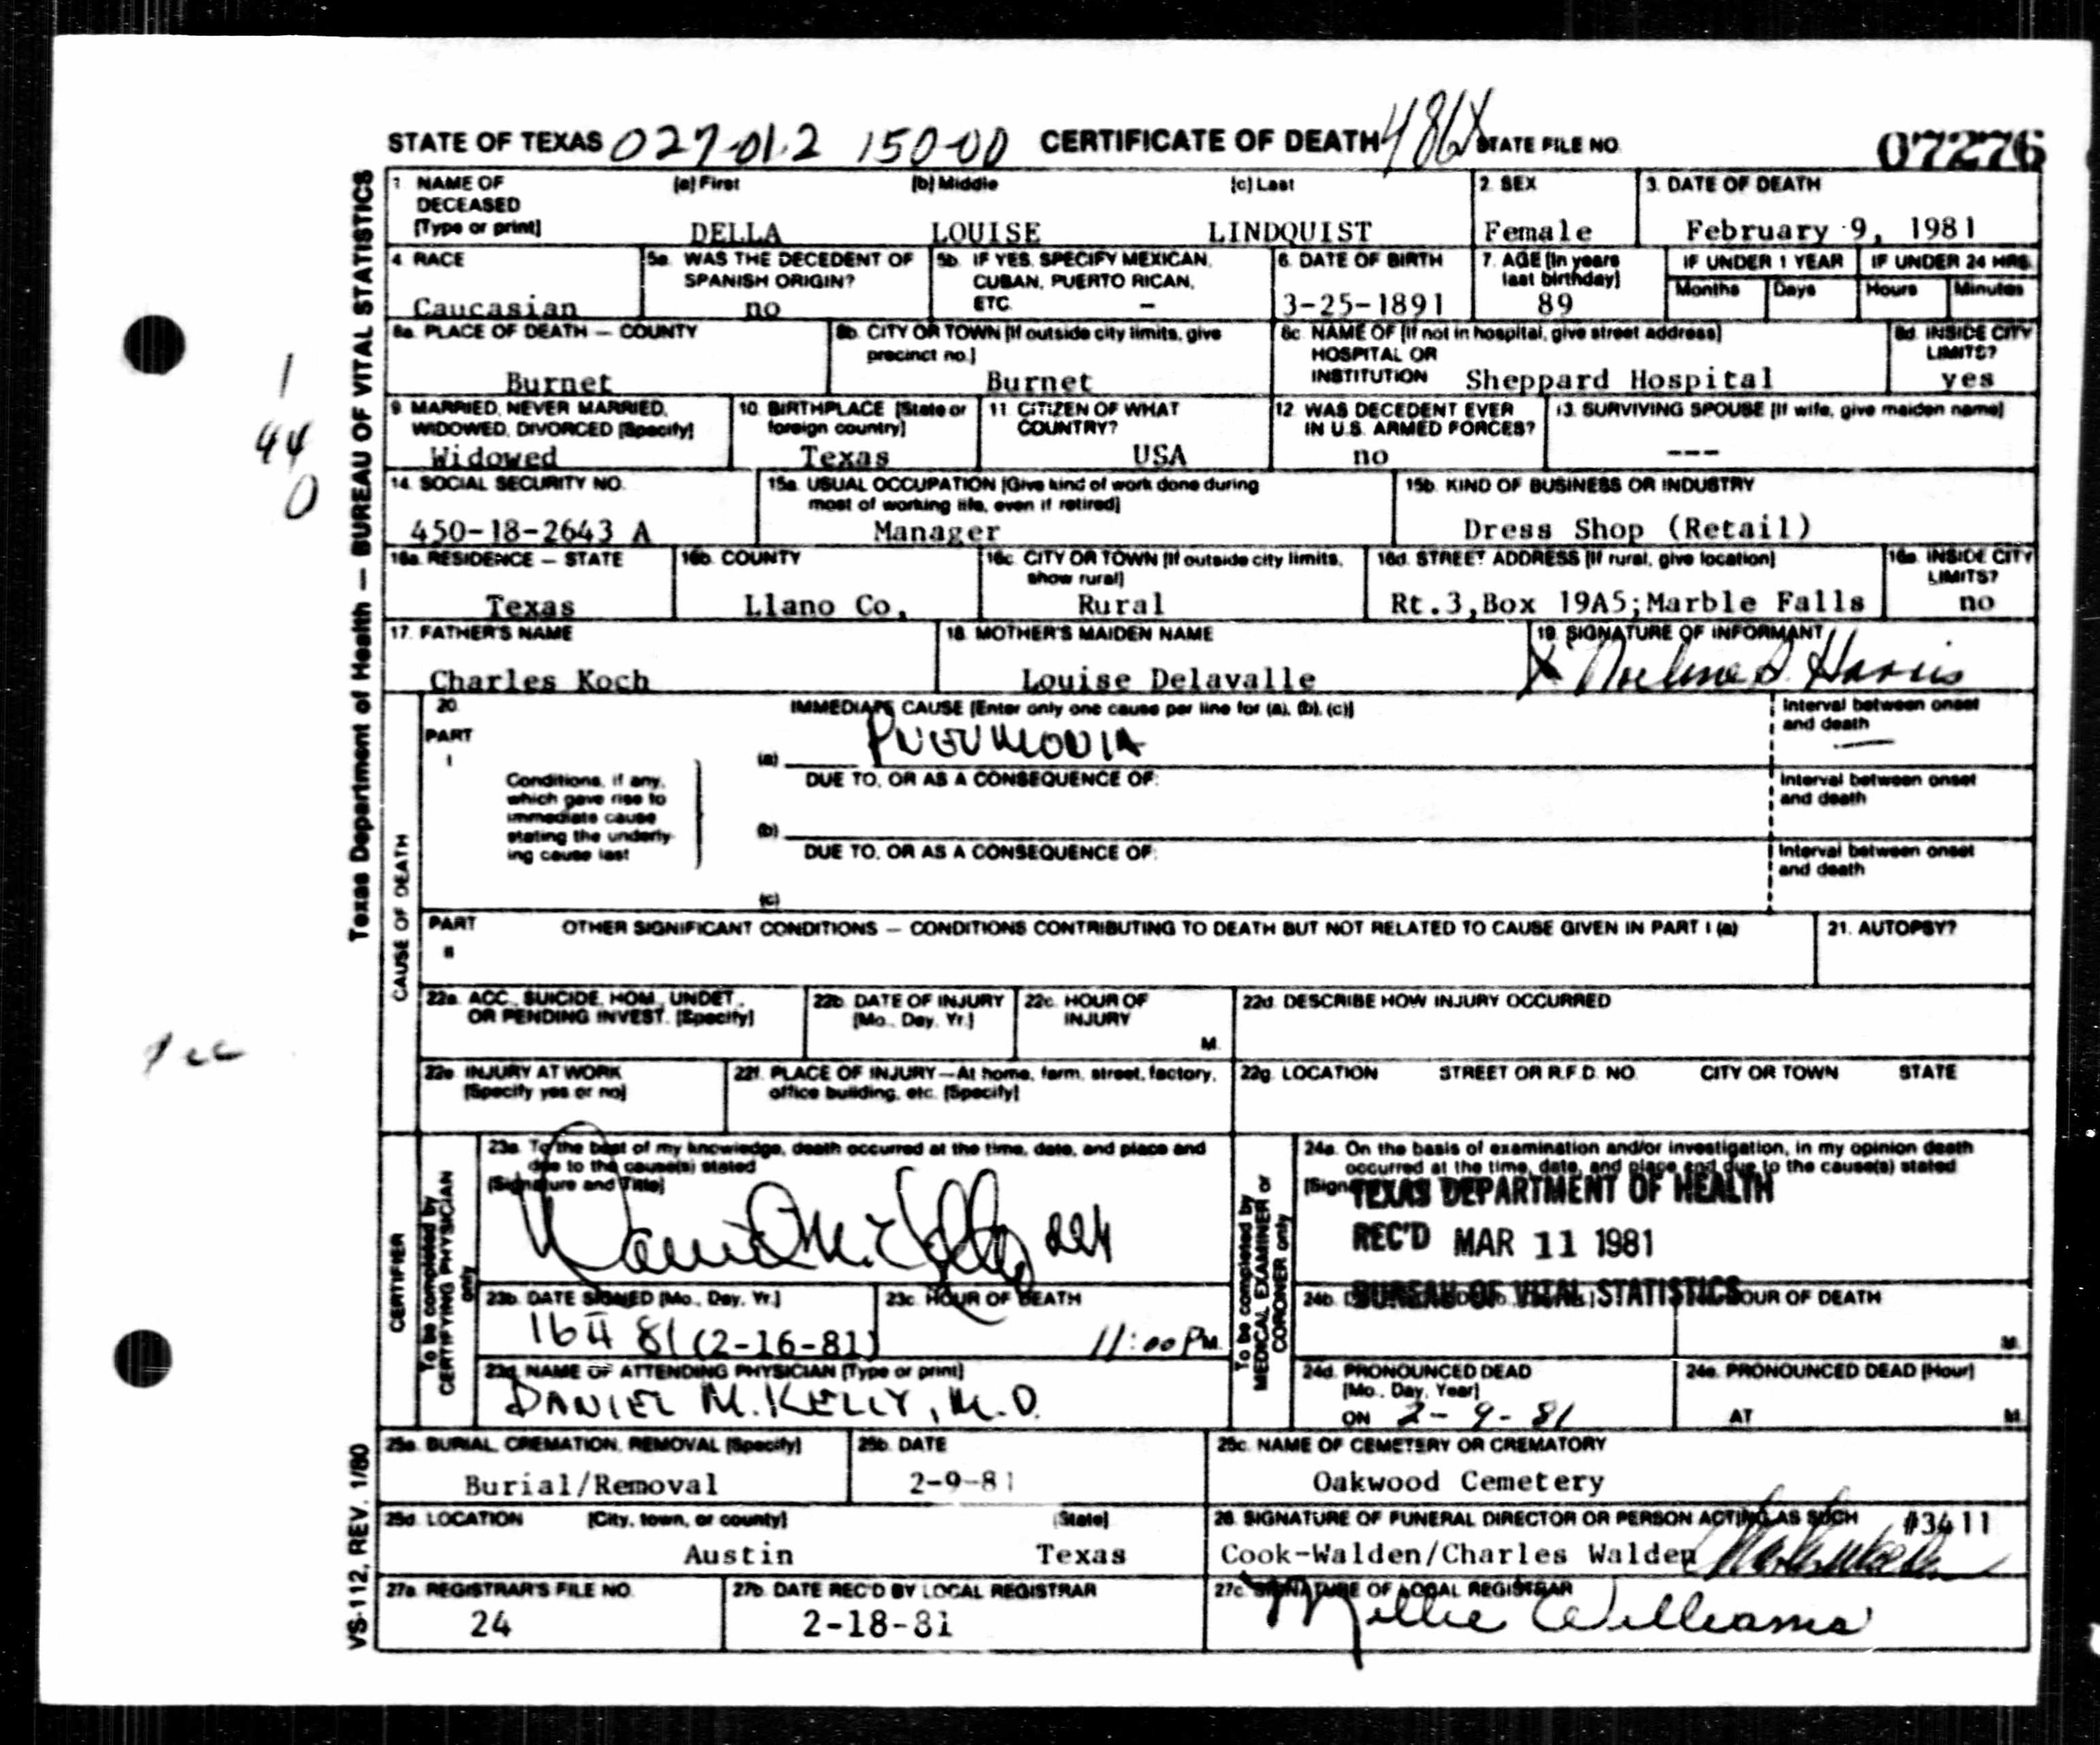 STATE OF TEXAS 027-01.2 150-00 CERTIFICATE OF DEATH 486X STATE FILE NO. 07276
Texas Department of Health — BUREAU OF VITAL STATISTICS
1 NAME OF DECEASED [Type or print] (a) First (b) Middle (c) Last
DELLA LOUISE LINDQUIST
2. SEX
Female
3. DATE OF DEATH
February 9, 1981
4 RACE
Caucasian
5a. WAS THE DECEDENT OF SPANISH ORIGIN?
no
5b. IF YES, SPECIFY MEXICAN, CUBAN, PUERTO RICAN, ETC. –
6. DATE OF BIRTH
3-25-1891
7. AGE [In years last birthday]
89
IF UNDER 1 YEAR
Months Days
IF UNDER 24 HRS.
Hours Minutes
8a. PLACE OF DEATH — COUNTY
Burnet
8b. CITY OR TOWN [If outside city limits, give precinct no.]
Burnet
8c. NAME OF [If not in hospital, give street address] HOSPITAL OR INSTITUTION
Sheppard Hospital
8d. INSIDE CITY LIMITS?
yes
1
44
0
9. MARRIED, NEVER MARRIED, WIDOWED, DIVORCED [Specify]
Widowed
10. BIRTHPLACE [State or foreign country]
Texas
11. CITIZEN OF WHAT COUNTRY?
USA
12. WAS DECEDENT EVER IN U.S. ARMED FORCES?
no
13. SURVIVING SPOUSE [If wife, give maiden name]
---
14. SOCIAL SECURITY NO.
450-18-2643 A
15a. USUAL OCCUPATION [Give kind of work done during most of working life, even if retired]
Manager
15b. KIND OF BUSINESS OR INDUSTRY
Dress Shop (Retail)
16a. RESIDENCE — STATE
Texas
16b. COUNTY
Llano Co.
16c. CITY OR TOWN [If outside city limits, show rural]
Rural
16d. STREET ADDRESS [If rural, give location]
Rt.3,Box 19A5;Marble Falls
16e. INSIDE CITY LIMITS?
no
17. FATHER'S NAME
Charles Koch
18. MOTHER'S MAIDEN NAME
Louise Delavalle
19. SIGNATURE OF INFORMANT
X Harris
CAUSE OF DEATH
20. PART I
IMMEDIATE CAUSE [Enter only one cause per line for (a), (b), (c)]
(a) PNEUMONIA
Interval between onset and death —
Conditions, if any, which gave rise to immediate cause stating the underlying cause last
DUE TO, OR AS A CONSEQUENCE OF:
(b)
Interval between onset and death
DUE TO, OR AS A CONSEQUENCE OF:
(c)
Interval between onset and death
PART II OTHER SIGNIFICANT CONDITIONS — CONDITIONS CONTRIBUTING TO DEATH BUT NOT RELATED TO CAUSE GIVEN IN PART I (a)
21. AUTOPSY?
22a. ACC., SUICIDE, HOM., UNDET., OR PENDING INVEST. [Specify]
22b. DATE OF INJURY [Mo., Day, Yr.]
22c. HOUR OF INJURY M.
22d. DESCRIBE HOW INJURY OCCURRED
22e. INJURY AT WORK [Specify yes or no]
22f. PLACE OF INJURY—At home, farm, street, factory, office building, etc. [Specify]
22g. LOCATION STREET OR R.F.D. NO. CITY OR TOWN STATE
CERTIFIER
To be completed by CERTIFYING PHYSICIAN only
23a. To the best of my knowledge, death occurred at the time, date, and place and due to the cause(s) stated
[Signature and Title]
23b. DATE SIGNED [Mo., Day, Yr.]
16 II 81 (2-16-81)
23c. HOUR OF DEATH
11:00 PM.
23d. NAME OF ATTENDING PHYSICIAN [Type or print]
DANIEL M. KELLY, M.D.
To be completed by MEDICAL EXAMINER or CORONER only
24a. On the basis of examination and/or investigation, in my opinion death occurred at the time, date, and place and due to the cause(s) stated
TEXAS DEPARTMENT OF HEALTH
REC'D MAR 11 1981
BUREAU OF VITAL STATISTICS
24b. HOUR OF DEATH
M.
24d. PRONOUNCED DEAD [Mo., Day, Year]
ON 2-9-81
24e. PRONOUNCED DEAD [Hour]
AT M.
25a. BURIAL, CREMATION, REMOVAL [Specify]
Burial/Removal
25b. DATE
2-9-81
25c. NAME OF CEMETERY OR CREMATORY
Oakwood Cemetery
25d. LOCATION [City, town, or county] [State]
Austin Texas
26. SIGNATURE OF FUNERAL DIRECTOR OR PERSON ACTING AS SUCH #3411
Cook-Walden/Charles Walden
27a. REGISTRAR'S FILE NO.
24
27b. DATE REC'D BY LOCAL REGISTRAR
2-18-81
27c. SIGNATURE OF LOCAL REGISTRAR
Millie Williams
VS-112, REV. 1/80